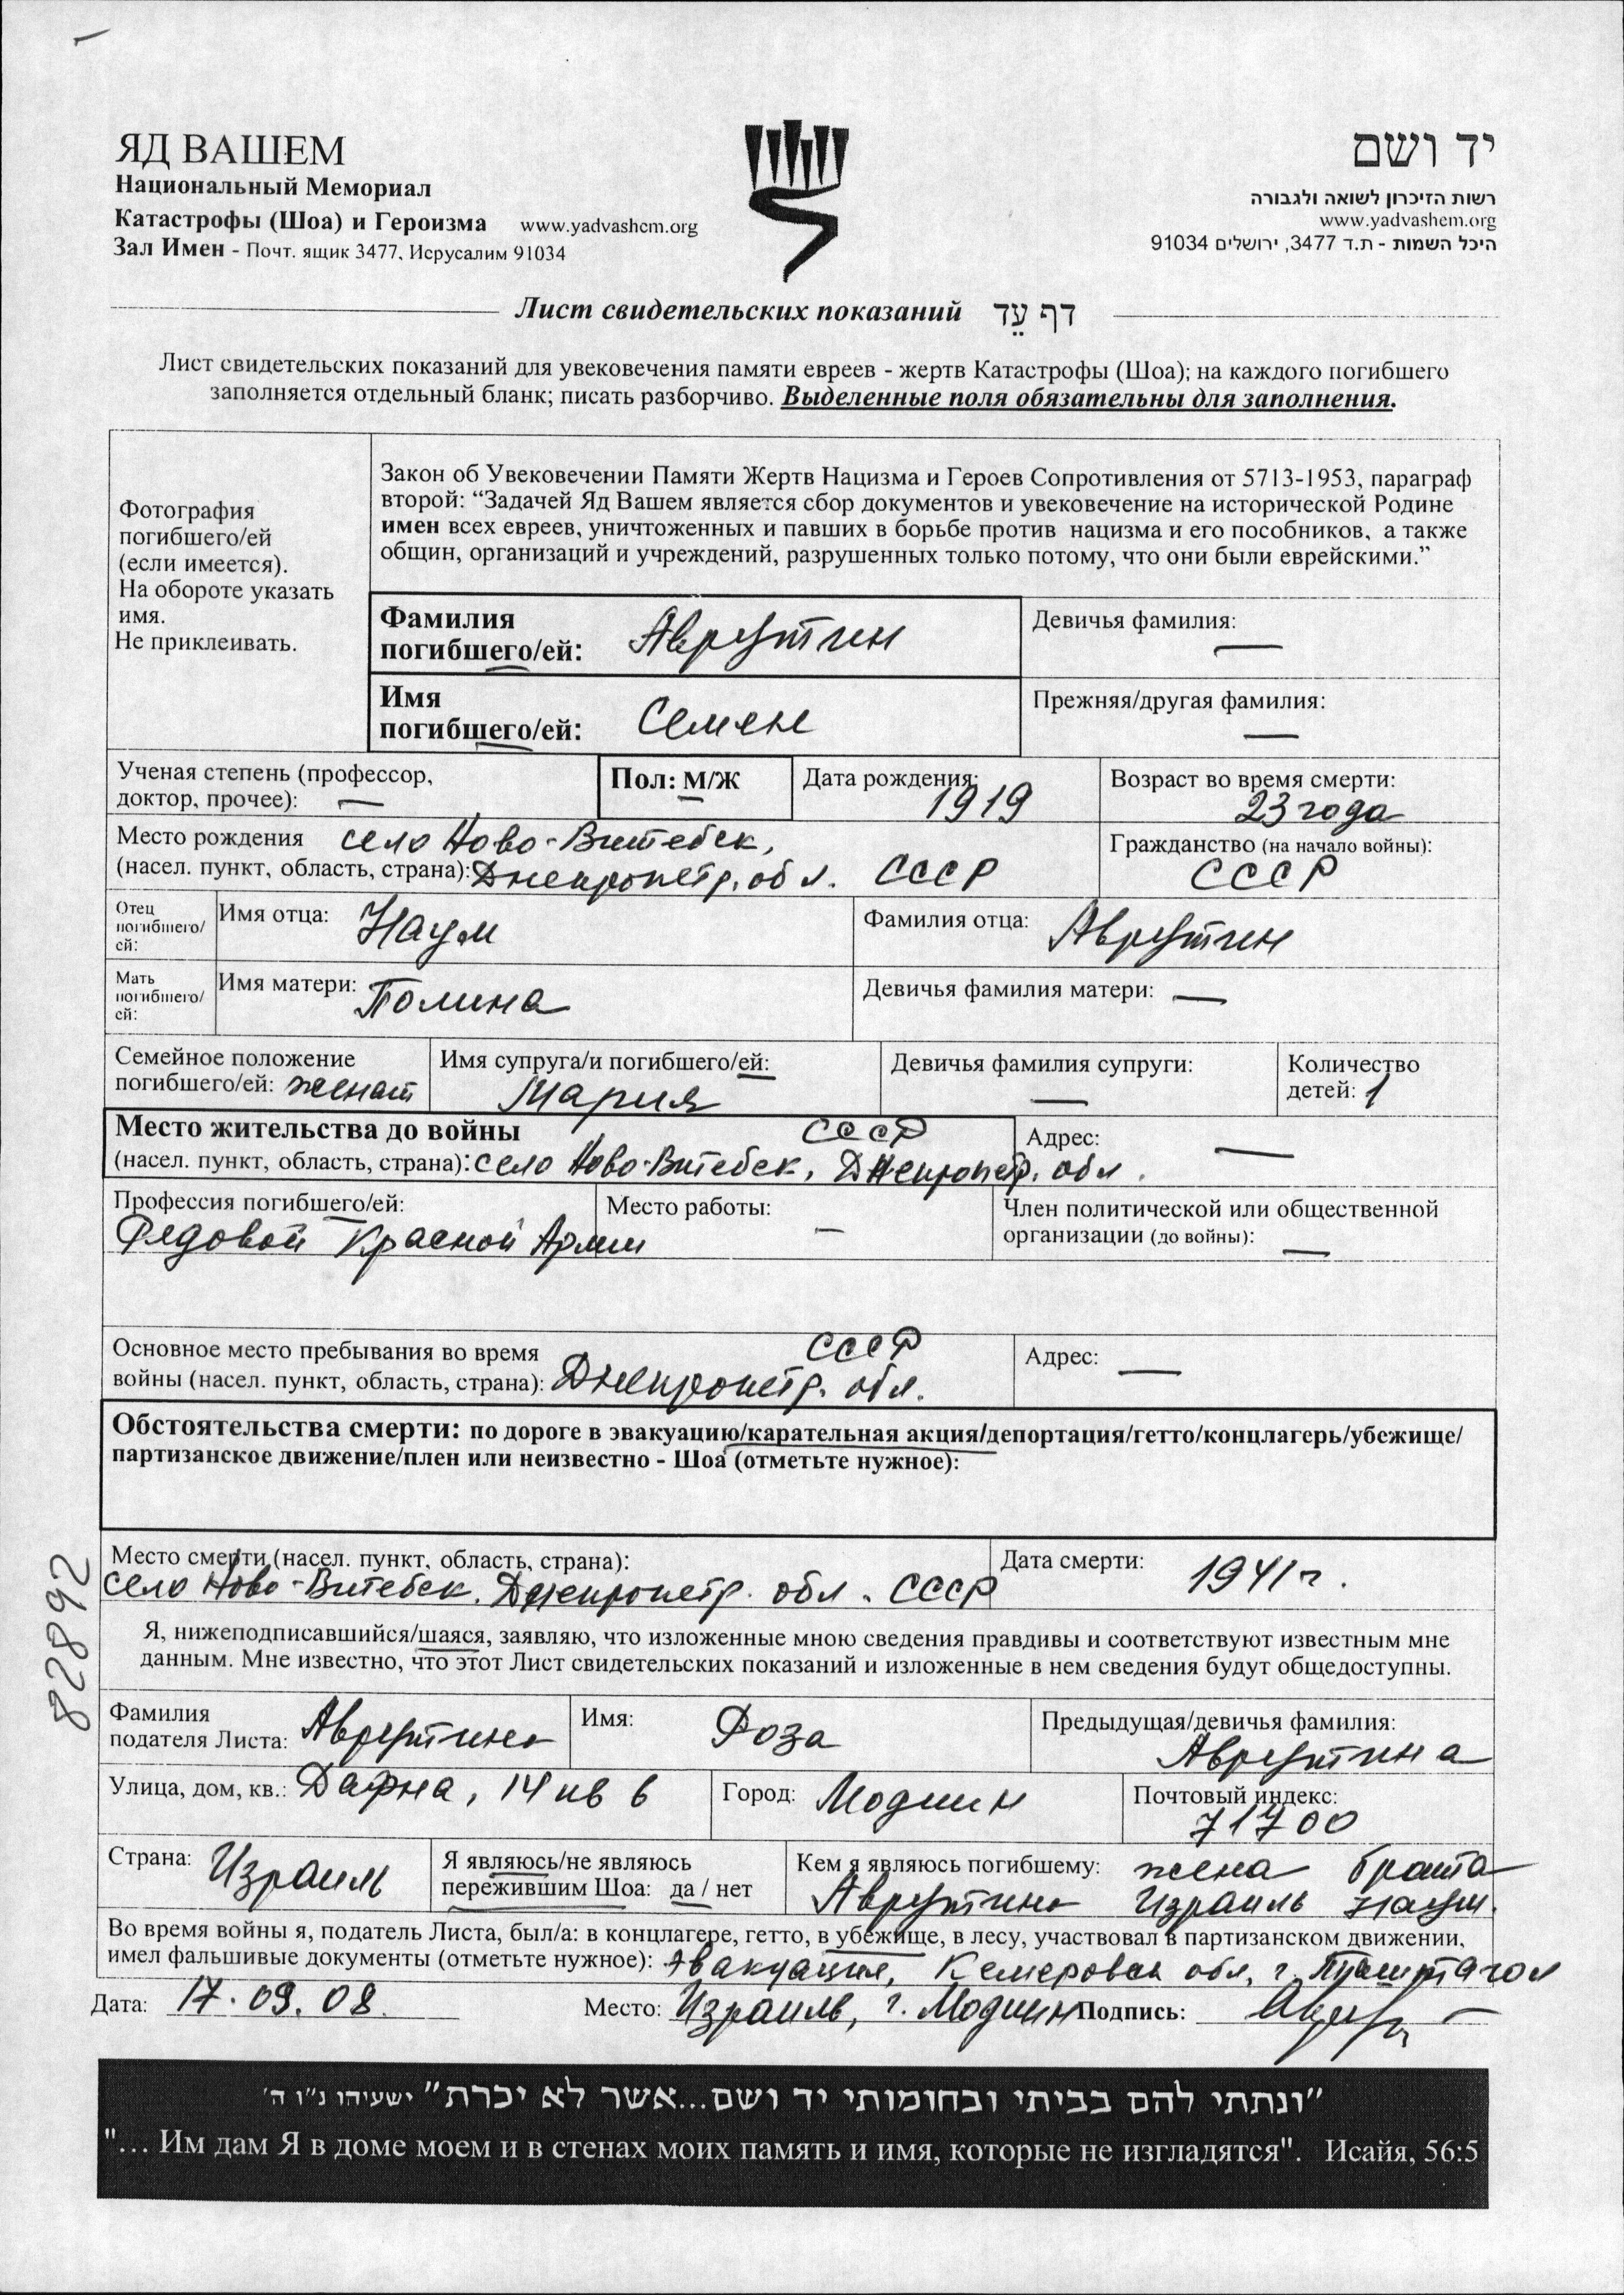 ЯД ВАШЕМ
Национальный Мемориал
Катастрофы (Шоа) и Героизма www.yadvashem.org
Зал Имен - Почт. ящик 3477, Иерусалим 91034
יד ושם
רשות הזיכרון לשואה ולגבורה
www.yadvashem.org
היכל השמות - ת.ד 3477, ירושלים 91034
Лист свидетельских показаний דף עֵד
Лист свидетельских показаний для увековечения памяти евреев - жертв Катастрофы (Шоа); на каждого погибшего
заполняется отдельный бланк; писать разборчиво. Выделенные поля обязательны для заполнения.
Фотография
погибшего/ей
(если имеется).
На обороте указать
имя.
Не приклеивать.
Закон об Увековечении Памяти Жертв Нацизма и Героев Сопротивления от 5713-1953, параграф
второй: “Задачей Яд Вашем является сбор документов и увековечение на исторической Родине
имен всех евреев, уничтоженных и павших в борьбе против нацизма и его пособников, а также
общин, организаций и учреждений, разрушенных только потому, что они были еврейскими.”
Фамилия
погибшего/ей: Аврутин
Девичья фамилия: —
Имя
погибшего/ей: Семен
Прежняя/другая фамилия: —
Ученая степень (профессор,
доктор, прочее): —
Пол: М/Ж
Дата рождения: 1919
Возраст во время смерти:
23 года
Место рождения село Ново-Витебск,
(насел. пункт, область, страна): Днепропетр. обл. СССР
Гражданство (на начало войны):
СССР
Отец
погибшего/
ей:
Имя отца: Наум
Фамилия отца: Аврутин
Мать
погибшего/
ей:
Имя матери: Полина
Девичья фамилия матери: —
Семейное положение
погибшего/ей: женат
Имя супруга/и погибшего/ей:
Мария
Девичья фамилия супруги:
—
Количество
детей: 1
Место жительства до войны СССР
(насел. пункт, область, страна): село Ново-Витебск, Днепропетр. обл.
Адрес: —
Профессия погибшего/ей:
Рядовой Красной Армии
Место работы: —
Член политической или общественной
организации (до войны): —
Основное место пребывания во время СССР
войны (насел. пункт, область, страна): Днепропетр. обл.
Адрес: —
Обстоятельства смерти: по дороге в эвакуацию/карательная акция/депортация/гетто/концлагерь/убежище/
партизанское движение/плен или неизвестно - Шоа (отметьте нужное):
Место смерти (насел. пункт, область, страна):
село Ново-Витебск, Днепропетр. обл. СССР
Дата смерти: 1941 г.
82892
Я, нижеподписавшийся/шаяся, заявляю, что изложенные мною сведения правдивы и соответствуют известным мне
данным. Мне известно, что этот Лист свидетельских показаний и изложенные в нем сведения будут общедоступны.
Фамилия
подателя Листа: Аврутина
Имя: Роза
Предыдущая/девичья фамилия:
Аврутина
Улица, дом, кв.: Дафна, 14 кв 6
Город: Модиин
Почтовый индекс:
71700
Страна: Израиль
Я являюсь/не являюсь
пережившим Шоа: да / нет
Кем я являюсь погибшему: жена брата
Аврутина Израиль Наум.
Во время войны я, податель Листа, был/а: в концлагере, гетто, в убежище, в лесу, участвовал в партизанском движении,
имел фальшивые документы (отметьте нужное): Эвакуация, Кемеровск обл, г. Таштагол
Дата: 17.09.08. Место: Израиль, г. Модиин Подпись:
"ונתתי להם בביתי ובחומותי יד ושם...אשר לא יכרת" ישעיהו נ"ו ה'
"… Им дам Я в доме моем и в стенах моих память и имя, которые не изгладятся". Исайя, 56:5